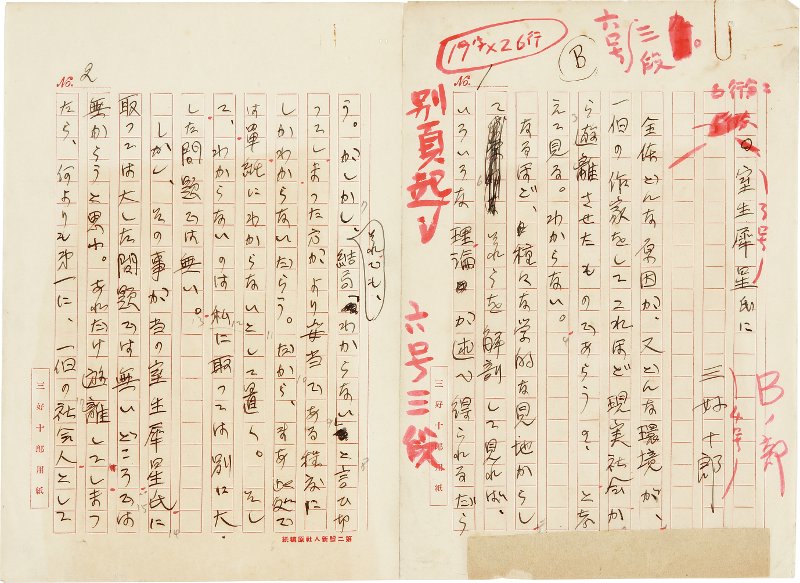 19字×26行
B
六号
三段
No. 1
別頁起し
六号三段
室生犀星氏に
3号
三好十郎
4号
Bノ部
全体どんな原因が、又どんな環境が、
一個の作家をしてこれほど現実社会か
ら遊離させたものであらう?と考
えて見る。わからない。
なるほど、種々な学的な見地からし
て それらを解剖して見れば、
いろいろな理論が述べ得られるだら
三好十郎用紙
No. 2
う。しかし、それでも、結局「わからない」と言ひ切
つてしまつた方がより妥当である様な
しかわからないだらう。だから、まあ此処で
は単純にわからないとして置く。そし
て、わからないのは私に取つては別に大
した問題では無い。
しかし、その事が当の室生犀星氏に
取つては大した問題では無いどころでは
無からうと思ふ。あれだけ遊離してしまつ
たら、何よりも第一に、一個の社会人として
三好十郎用紙